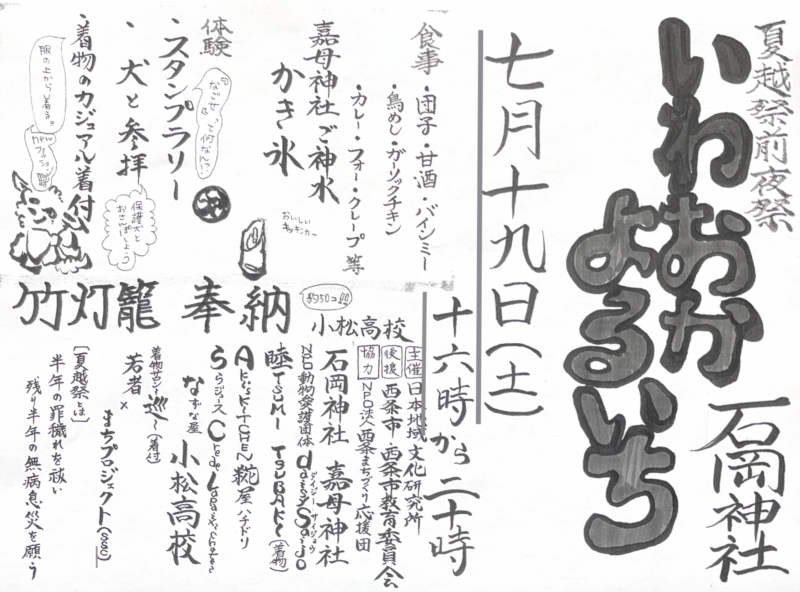 夏越祭前夜祭
いわおか
よるいち
石岡神社
七月十九日(土)
十六時から二十時
食事
・団子・甘酒・バインミー
・鳥めし・ガーリックチキン
・カレー・フォー・クレープ 等
おいしい
キッチンカー
嘉母神社ご神水
かき氷
体験
・スタンプラリー
・犬と参拝
保護犬と
おさんぽしよう
・着物のカジュアル着付
服の上から着る。
竹灯籠 奉納
約150コ!!
小松高校
主催 日本地域文化研究所
後援 西条市・西条市教育委員会
協力 NPO法人西条まちづくり応援団
石岡神社 嘉母神社
NPO動物愛護団体 daisy Saijo
デイジー サイジョウ
睦 TSUMI TSUBAKI (着物)
AKI's KITCHEN 糀屋ハチドリ
ららジュース
なずな屋 小松高校
着物サロン 巡へ(着付)
若者×まちプロジェクト(SSC)
[夏越祭とは]
半年の罪穢れを祓い
残り半年の無病息災を願う